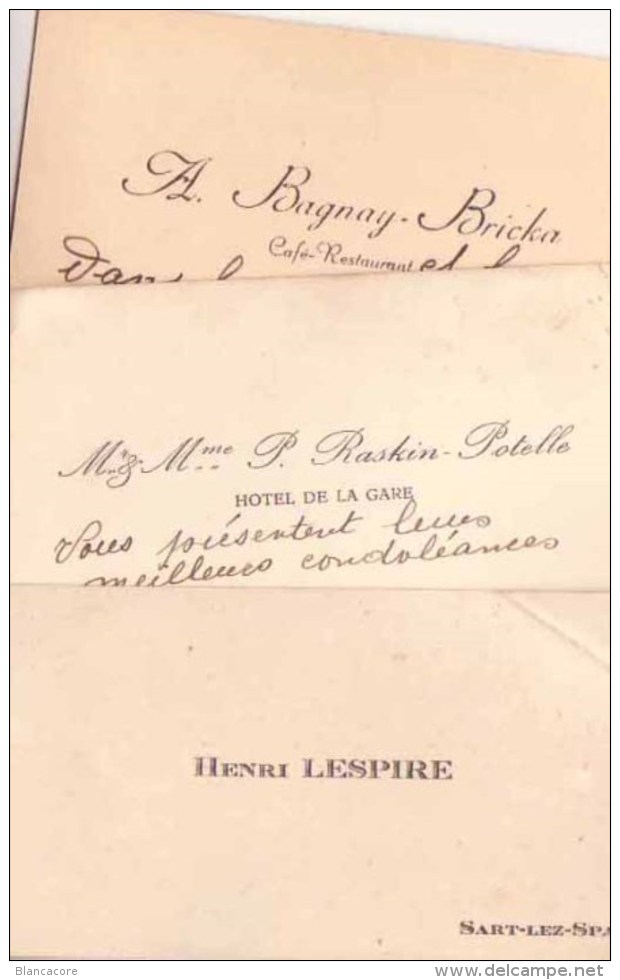 A. Bagnay-Bricka
Café-Restaurant
Dans et
Mr & Mme P. Raskin-Potelle
HOTEL DE LA GARE
Vous présentent leurs
meilleures condoléances
HENRI LESPIRE
SART-LEZ-SPA
Blancacore
delcampe.net